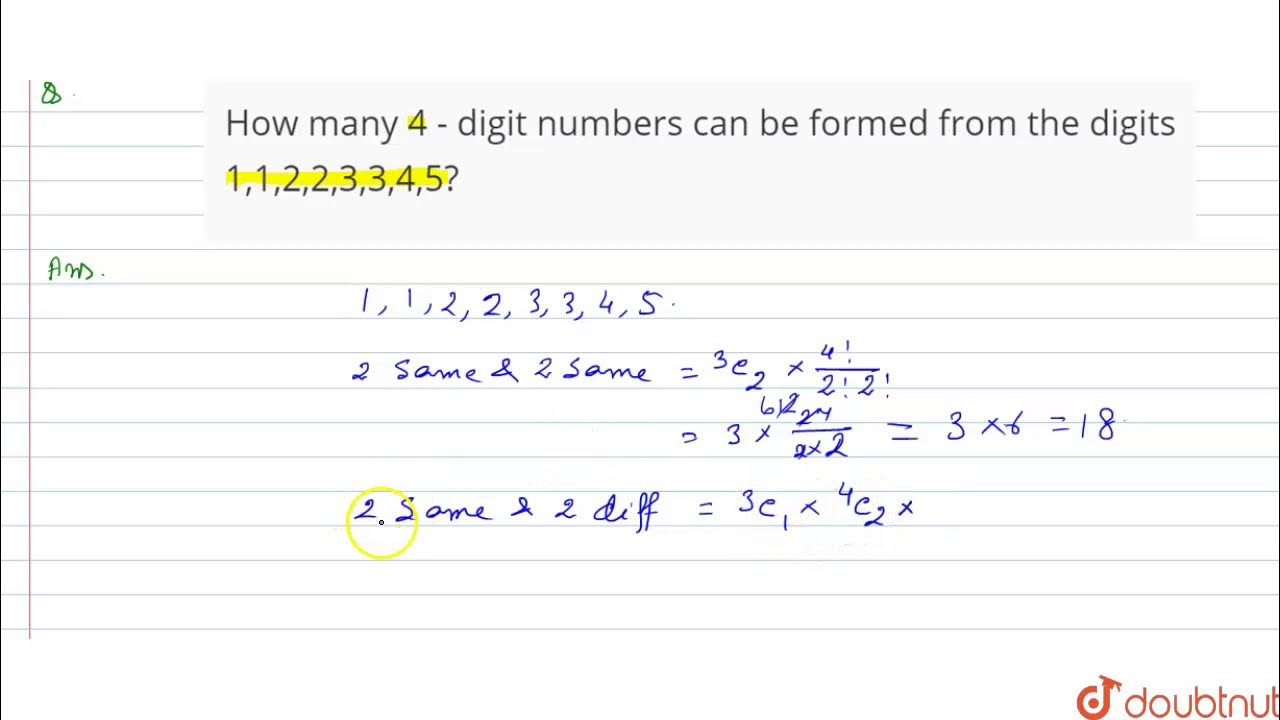 Q.
How many 4 - digit numbers can be formed from the digits
1,1,2,2,3,3,4,5?
Ans.
1, 1, 2, 2, 3, 3, 4, 5.
2 Same & 2 Same = ³C₂ × 4!/2!2!
= 3 × 24/2×2 = 3 × 6 = 18
2 Same & 2 diff = ³C₁ × ⁴C₂ ×
doubtnut